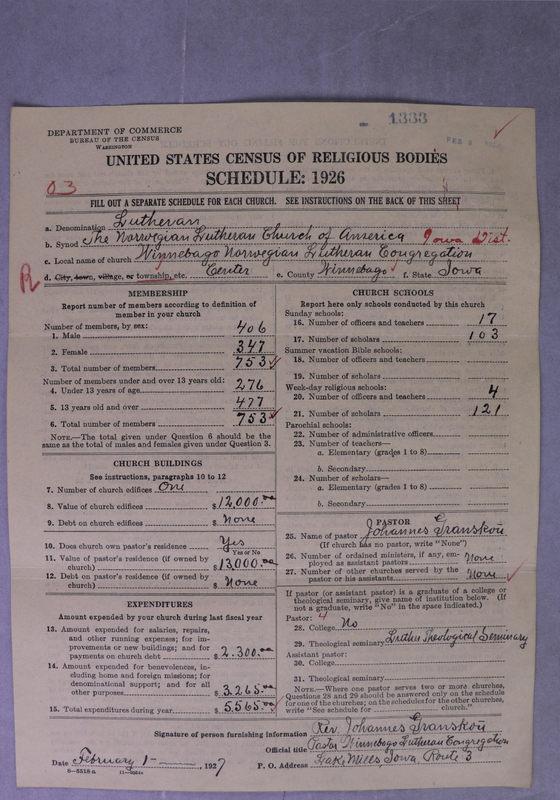 1333
DEPARTMENT OF COMMERCE
BUREAU OF THE CENSUS
WASHINGTON
FEB 2
UNITED STATES CENSUS OF RELIGIOUS BODIES
SCHEDULE: 1926
03
FILL OUT A SEPARATE SCHEDULE FOR EACH CHURCH. SEE INSTRUCTIONS ON THE BACK OF THIS SHEET
a. Denomination Lutheran
b. Synod The Norwegian Lutheran Church of America Iowa Dist.
c. Local name of church Winnebago Norwegian Lutheran Congregation
R d. City, town, village, or township, etc. Center e. County Winnebago f. State Iowa
MEMBERSHIP
Report number of members according to definition of
member in your church
Number of members, by sex:
1. Male 406
2. Female 347
3. Total number of members 753
Number of members under and over 13 years old:
4. Under 13 years of age 276
5. 13 years old and over 477
6. Total number of members 753
NOTE.—The total given under Question 6 should be the
same as the total of males and females given under Question 3.
CHURCH BUILDINGS
See instructions, paragraphs 10 to 12
7. Number of church edifices One
8. Value of church edifices $12,000.00
9. Debt on church edifices $ None
10. Does church own pastor's residence Yes
Yes or No
11. Value of pastor's residence (if owned by
church) $13,000.00
12. Debt on pastor's residence (if owned by
church) $ None
EXPENDITURES
Amount expended by your church during last fiscal year
13. Amount expended for salaries, repairs,
and other running expenses; for im-
provements or new building; and for
payments on church debt $ 2.300.00
14. Amount expended for benevolences, in-
cluding home and foreign missions; for
denominational support; and for all
other purposes $ 3.265.00
15. Total expenditures during year $ 5.565.00
CHURCH SCHOOLS
Report here only schools conducted by this church
Sunday schools:
16. Number of officers and teachers 17
17. Number of scholars 103
Summer vacation Bible schools:
18. Number of officers and teachers
19. Number of scholars
Week-day religious schools:
20. Number of officers and teachers 4
21. Number of scholars 121
Parochial schools:
22. Number of administrative officers
23. Number of teachers—
a. Elementary (grades 1 to 8)
b. Secondary
24. Number of scholars—
a. Elementary (grades 1 to 8)
b. Secondary
PASTOR
25. Name of pastor Johannes Granskou
(If church has no pastor, write "None")
26. Number of ordained ministers, if any, em-
ployed as assistant pastors None
27. Number of other churches served by the
pastor or his assistants None
If pastor (or assistant pastor) is a graduate of a college or
theological seminary, give name of institution below. (If
not a graduate, write "No" in the space indicated.)
Pastor: 4
28. College No
29. Theological seminary Luther Theological Seminary
Assistant pastor:
30. College
31. Theological seminary
NOTE.—Where one pastor serves two or more churches,
Questions 28 and 29 should be answered only on the schedule
for one of the churches; on the schedules for the other churches,
write "See schedule for church."
Signature of person furnishing information Rev. Johannes Granskou
Official title Pastor Winnebago Lutheran Congregation
Date February 1- , 1927 P. O. Address Lake Mills, Iowa, Route 3
8—5318a